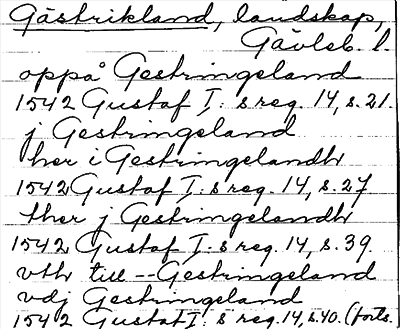 Gästrikland, landskap,
Gävleb. l.
oppå Gestringeland
1542 Gustaf I: s reg. 14, s. 21.
j Gestringeland
her i Gestringelandh
1542 Gustaf I: s reg. 14, s. 27
ther j Gestringelandh
1542 Gustaf I: s reg. 14, s. 39.
vth till -- Gestringeland
vdj Gestringeland
1542 Gustaf I: s reg. 14, s. 40. (forts.